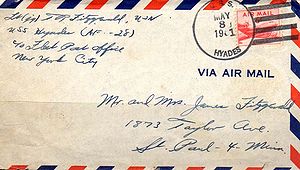 Lt(jg) T. G. Fitzgerald, USN
USS Hyades (AF-28)
℅ Fleet Post Office
New York City
U.S.S.
MAY
8
HYADES
AIR MAIL
VIA AIR MAIL
Mr. and Mrs. James Fitzgerald
1873 Taylor Ave.
St. Paul - 4 - Minn.